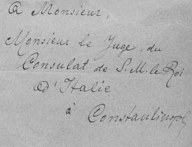 A Monsieur,
Monsieur le Juge, du
Consulat de S. M. le Roi
d'Italie
à Constantinople